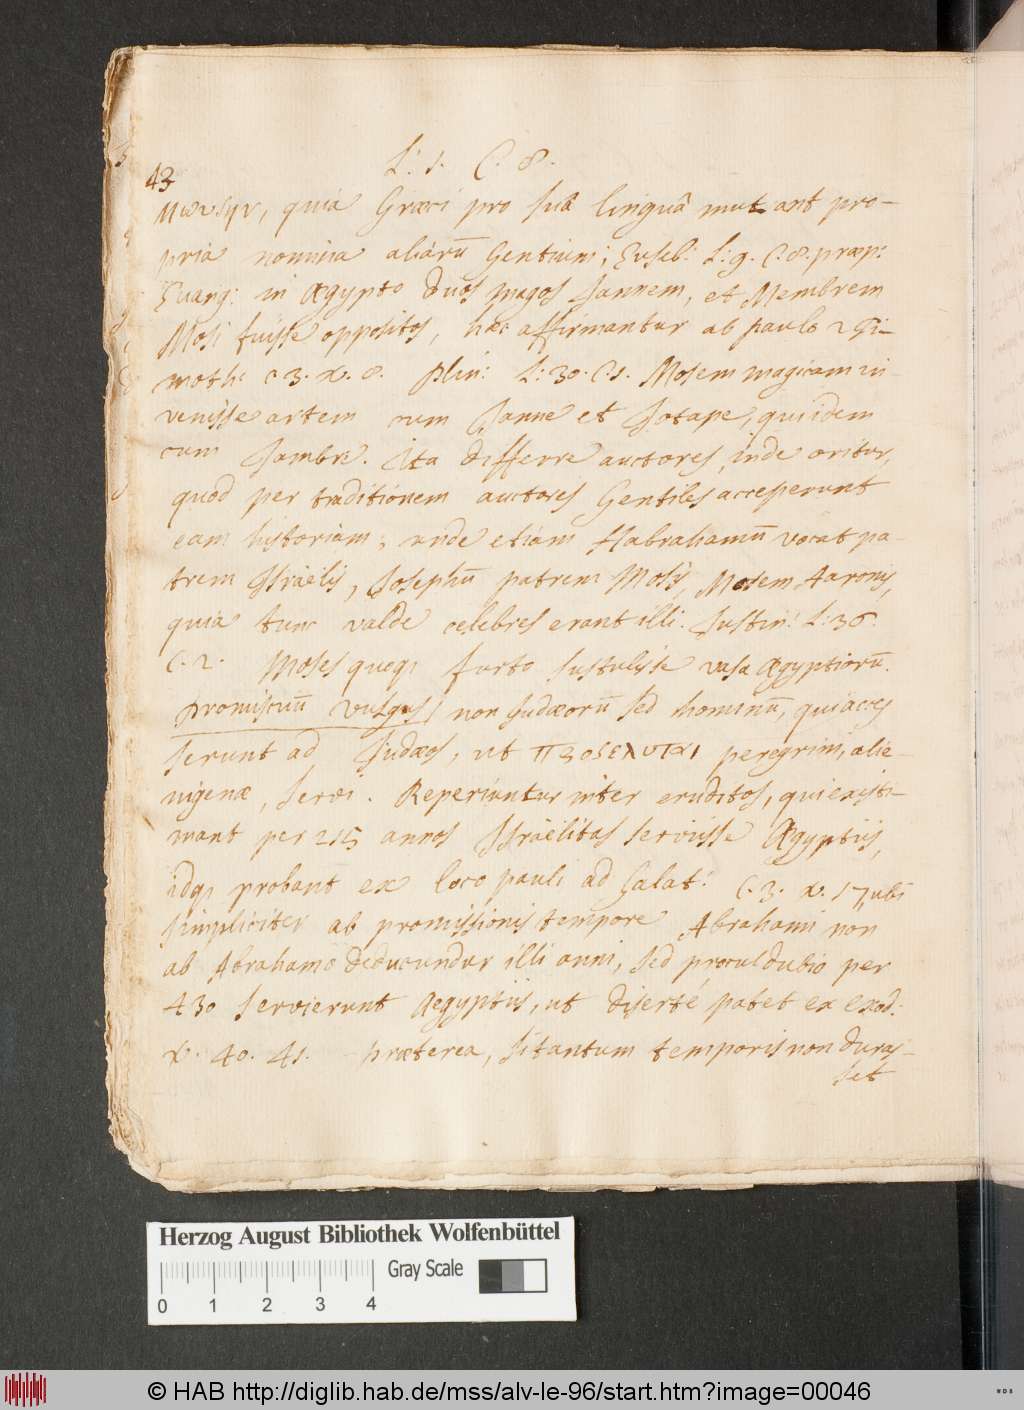 L: 1. C. 8.
43
Μωυσῆν, quia Græci pro suâ linguâ mutant pro-
pria nomina aliarū Gentium; Euseb: L: 9. C. 8. præp:
Euang: in Ægypto duos magos Jannem, et Membrem
Mosi fuisse oppositos, hæc affirmantur ab paulo 2 Ti-
moth: c 3. v. 8. Plin: L: 30. C. 1. Mosem magicam in-
venisse artem cum Janne et Jotape, qui idem
cum Jambre. Ita differre auctores, inde oritur,
quod per traditionem auctores Gentiles acceperunt
eam historiam; unde etiam Habrahamū vocat pa-
trem Israelis, Josephū patrem Mosis, Mosem Aaronis,
quia tunc valde celebres erant illi. Justin: L: 36.
C. 2. Moses quoq; furto sustulisse vasa Ægyptiorū.
promiscuū vulgus/ non Judæorū sed hominū, qui acces
serunt ad Judæos, ut προσελυται peregrini, alie-
nigenæ, servi. Reperiuntur inter eruditos, qui existi-
mant per 215 annos Israelitas serviisse Ægyptiis,
idq; probant ex loco pauli ad Galat: C. 3. v. 17, ubi
simpliciter ab promissionis tempore Abrahami non
ab Abrahamo deducuntur illi anni, sed proculdubio per
430 servierunt Aegyptiis, ut diserté patet ex Exod:
v. 40. 41. præterea, si tantum temporis non duras-
set
Herzog August Bibliothek Wolfenbüttel
Gray Scale
0 1 2 3 4
© HAB http://diglib.hab.de/mss/alv-le-96/start.htm?image=00046